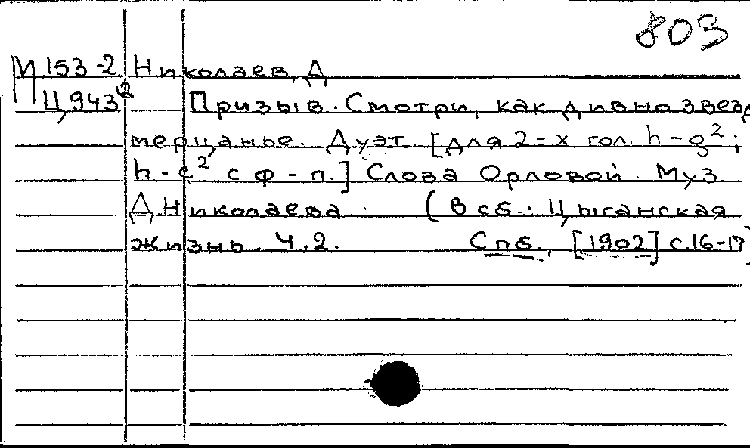 803
М 153-2 Николаев, Д
Ц 943² Призыв. Смотри, как дивно звезд
мерцанье. Дуэт. [для 2-х гол. h-g²;
h-c² с ф-п.] Слова Орловой. Муз.
Д. Николаева. (В сб.: Цыганская
жизнь. Ч. 2. Спб., [1902] с. 16-17)